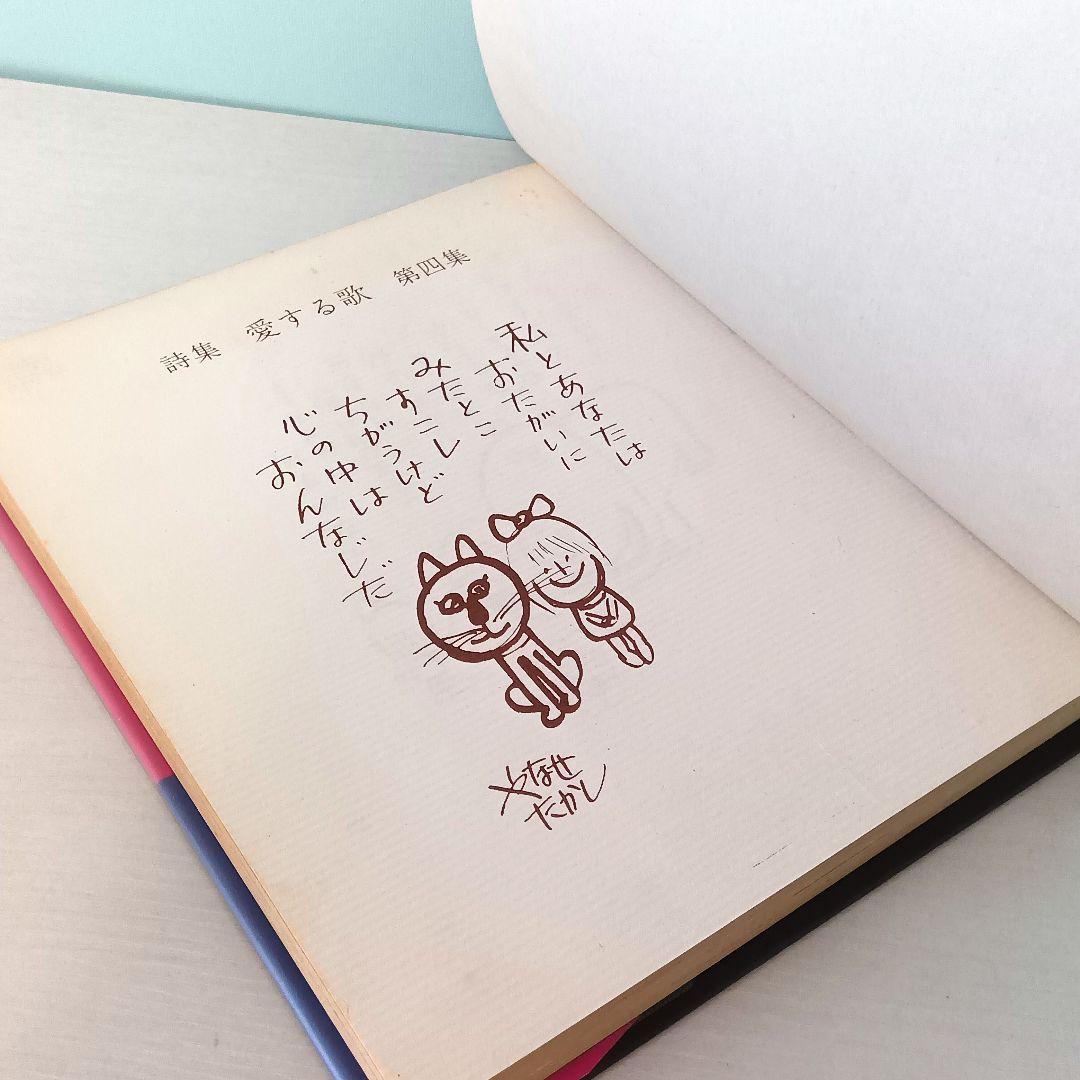 詩集 愛する歌 第四集
私とあなたは
おたがいに
みたとこ
すこし
ちがうけど
心の中は
おんなじだ
やなせ
たかし